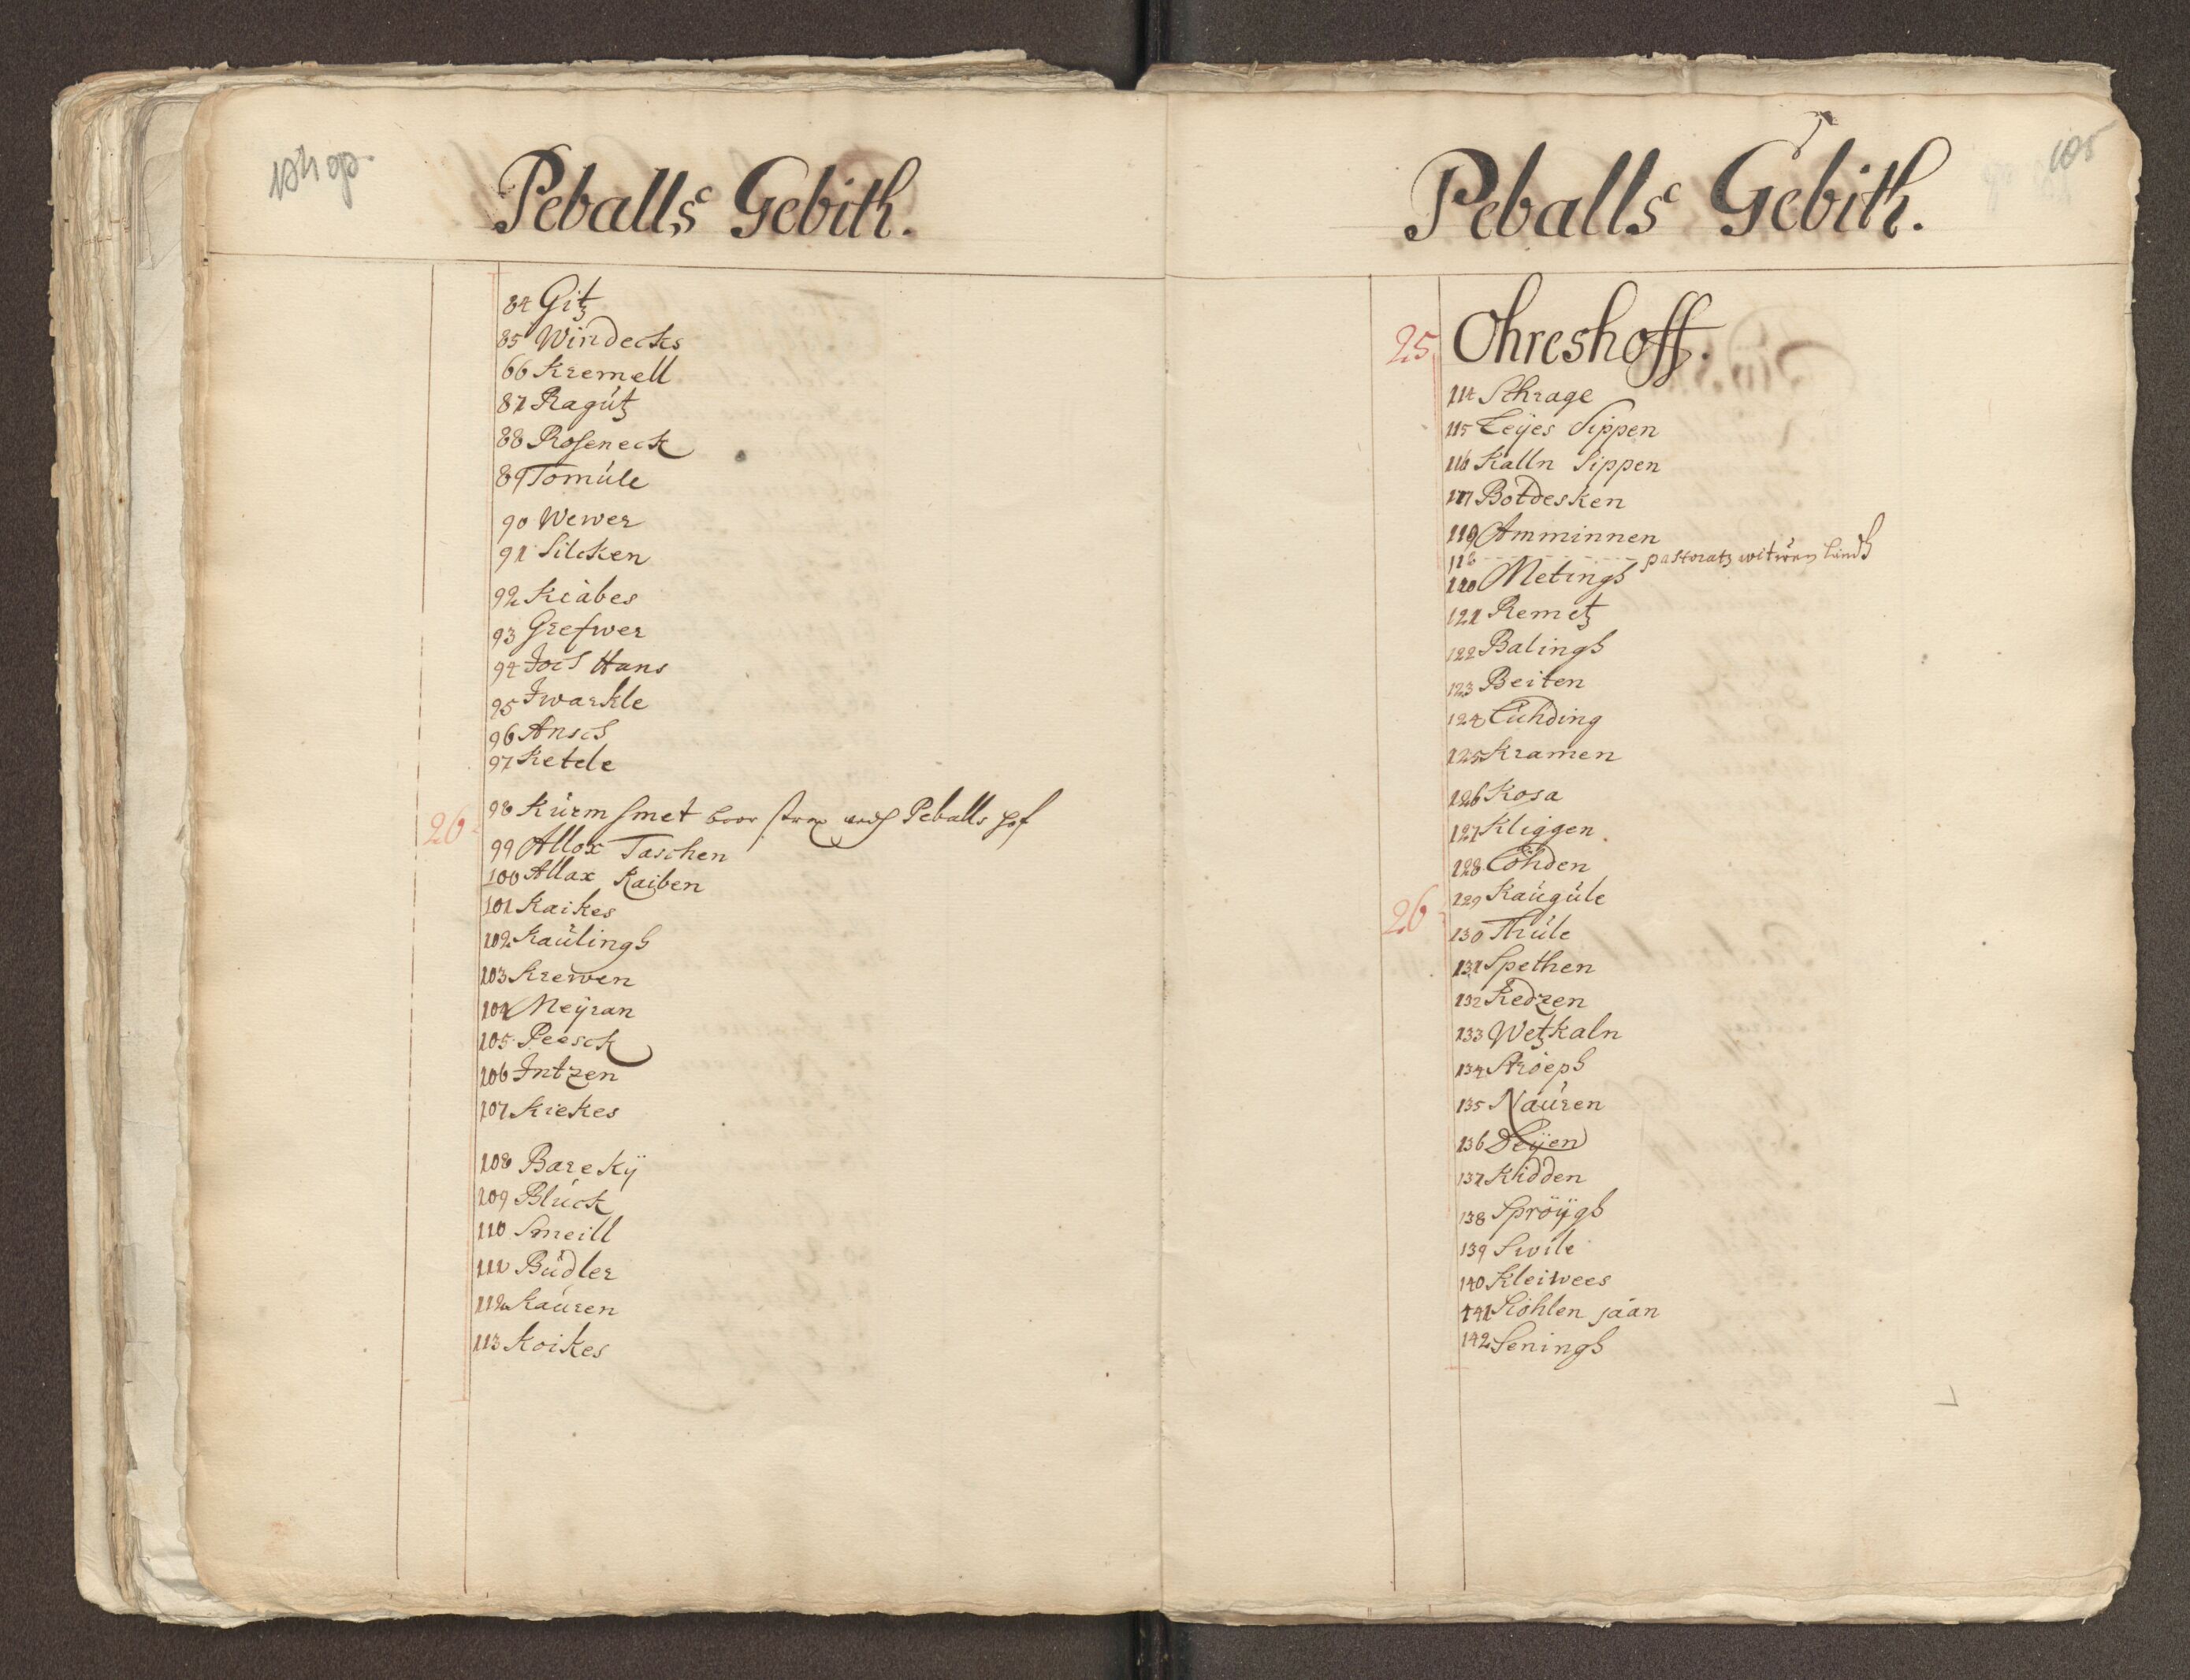 Peballs Gebith.
84 Gitz
85 Windecks
66 Kremell
87 Ragutz
88 Roseneck
89 Tomule
90 Wewer
91 Silcken
92 Kiabes
93 Grefwer
94 Hans
95 Iwarkle
96 Ansch
97 Ketele
26
98 Kurm smet Peballs hof
99 Allox Taschen
100 Allax Kaiben
101 Kaikes
102 Kaulingh
103 Krewen
104 Meÿran
105 Peesck
106 Intzen
107 Kiekes
108 Barekÿ
109 Bluck
110 Smeill
111 Budler
112 Kauren
113 Koikes
105
Peballs Gebith.
25 Ohreshoff.
114 Sthrage
115 Leÿes Sippen
116 Kalln Sippen
117 Botdesken
119 Amminnen
118 - - - - - - pastorats landh
120 Metingh
121 Remetz
122 Balingh
123 Beiten
124 Cuhding
125 Kramen
126 Kosa
127 Kliggen
128 Cohden
129 Kaugule
26
130 Thule
131 Spethen
132 Kedzen
133 Wetzkaln
134 Stroeph
135 Nauren
136 Deÿen
137 Kidden
138 Sproÿgh
139 Swile
140 Kleiwees
141 Kohlen jaan
142 Seningh